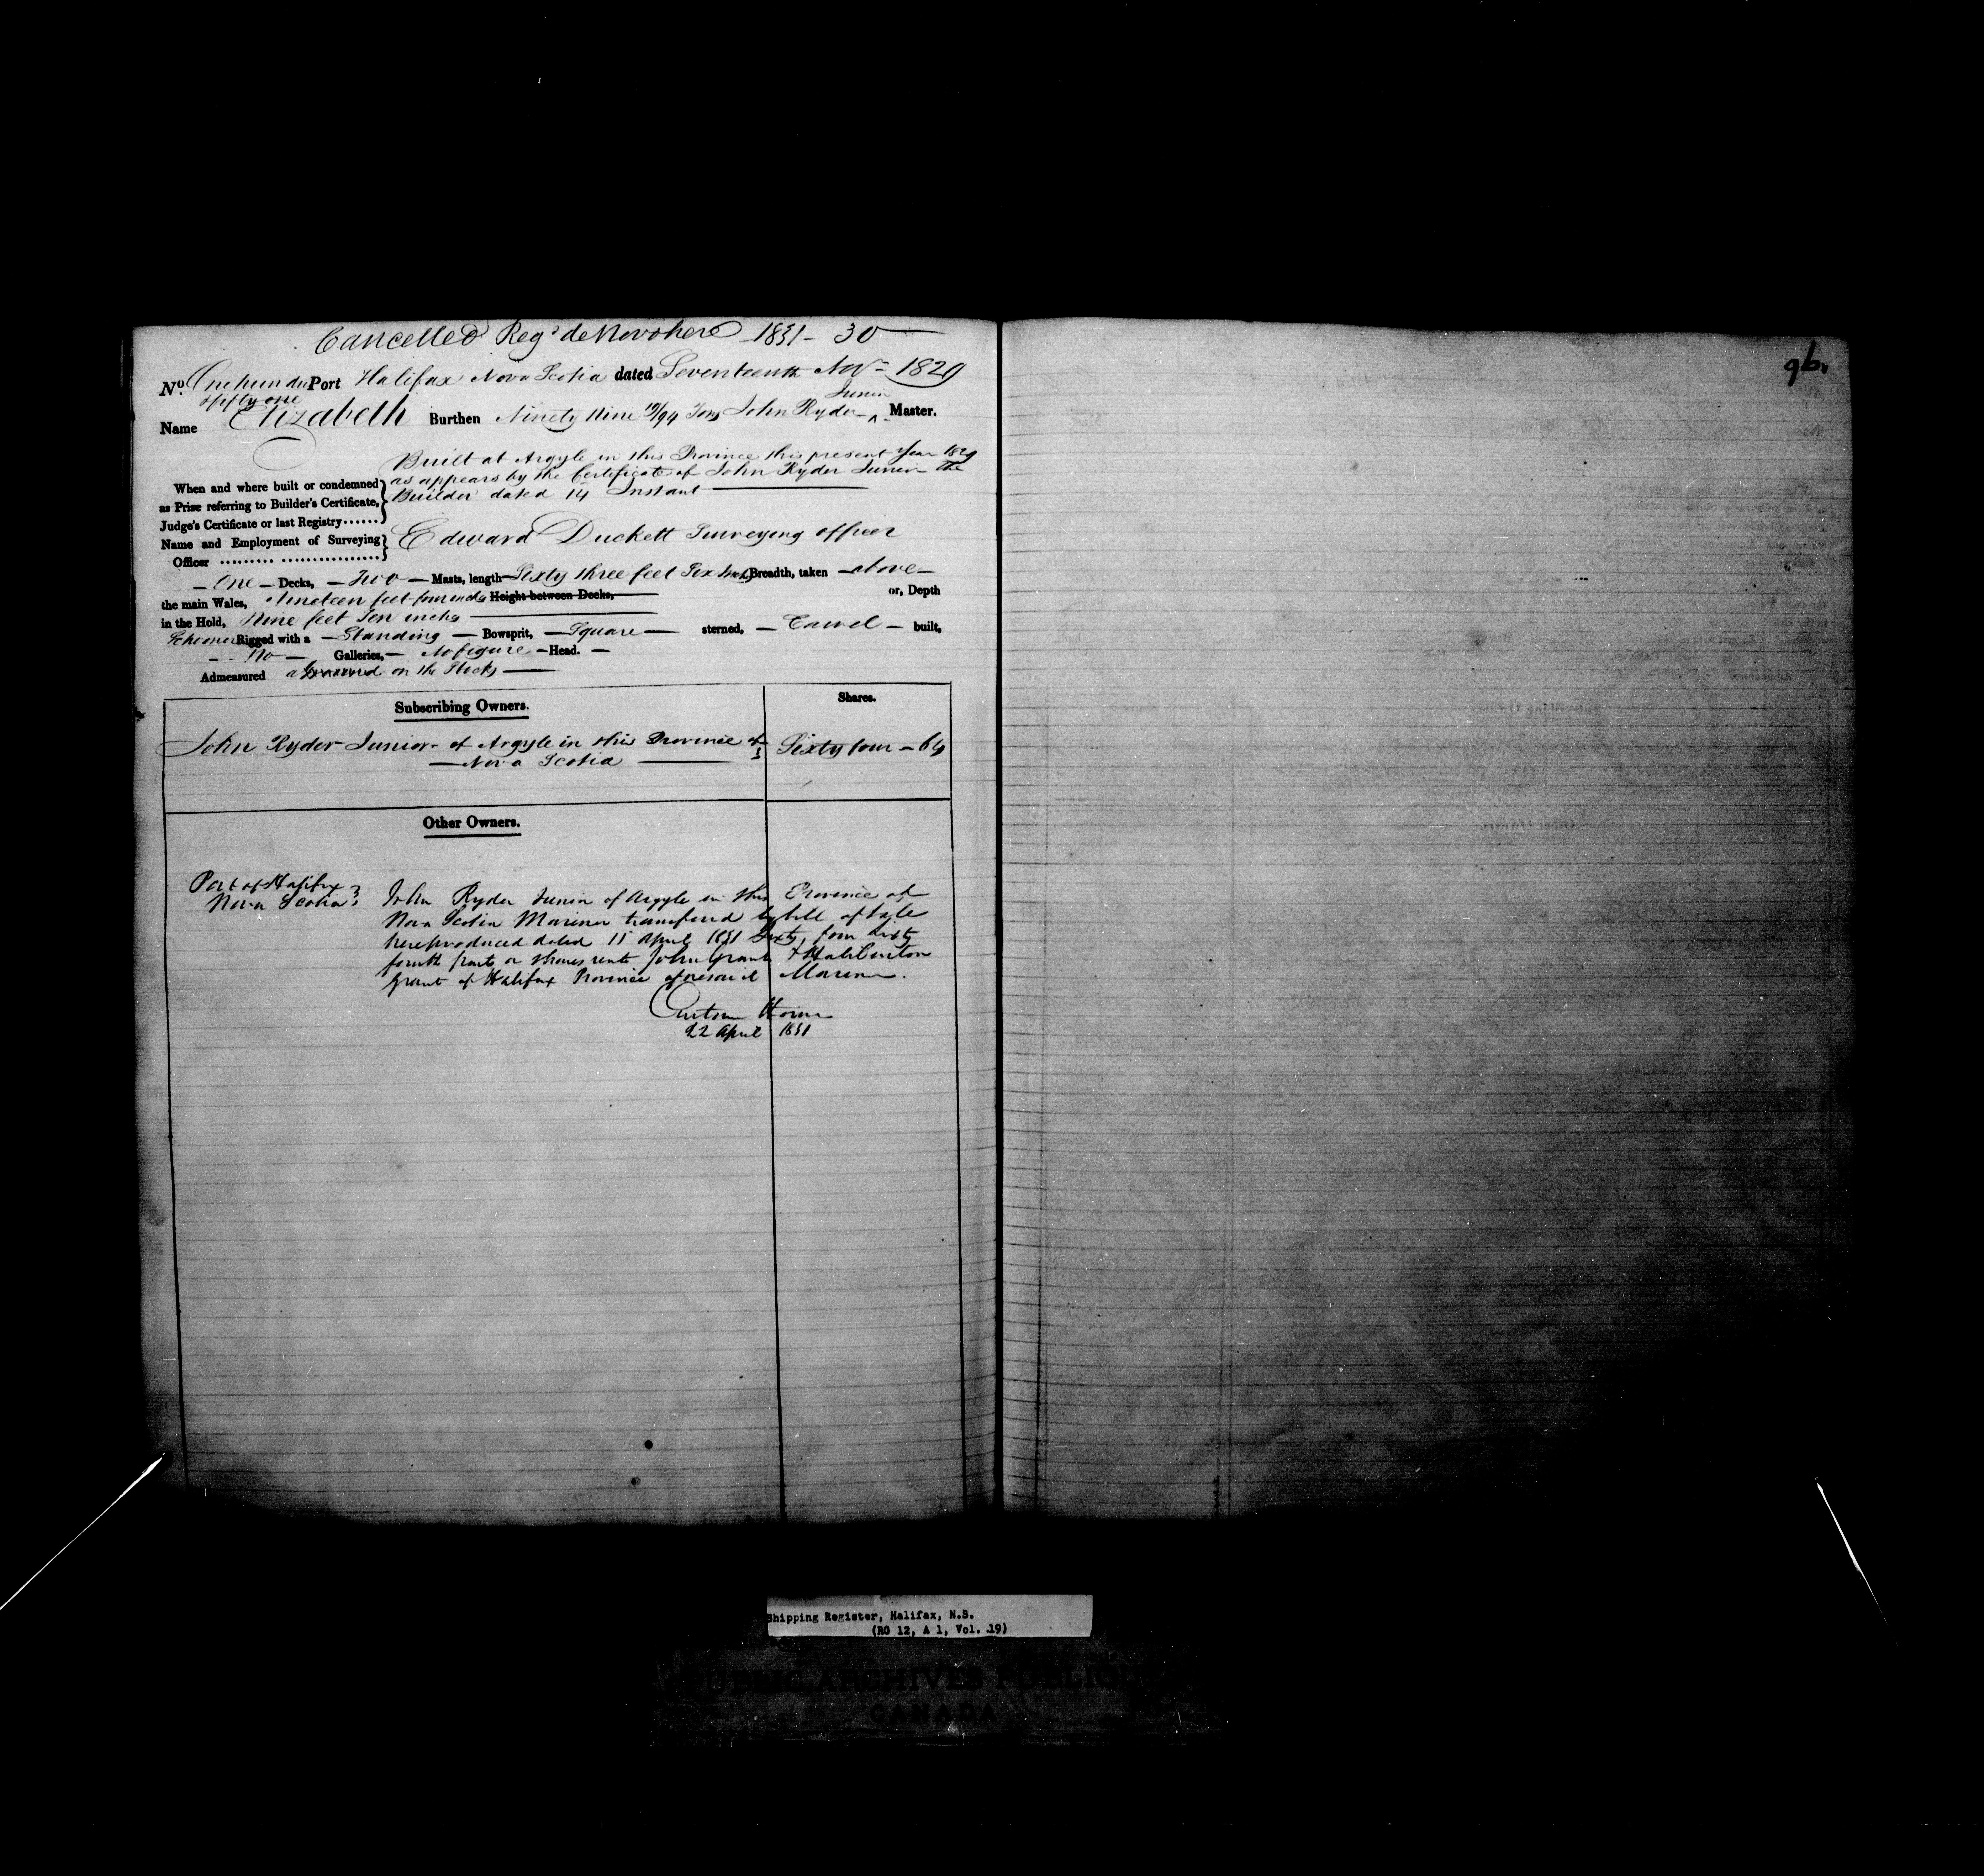 Cancelled Regd de Novo here 1831 - 30
96.
No. One hund & Port Halifax Nova Scotia dated Seventeenth Novr 1829
fifty one
Junior
Name Elizabeth Burthen Ninety Nine 19/94 Tons John Ryder ^ Master.
Built at Argyle in this Province this present Year 1829
as appears by the Certificate of John Ryder Junior the
Builder dated 14 Instant
When and where built or condemned
as Prize referring to Builder's Certificate,
Judge's Certificate or last Registry......
Name and Employment of Surveying
Officer ......... .................
Edward Duckett Surveying officer
One Decks, Two Masts, length Sixty three feet Six Inches Breadth, taken above
the main Wales, Nineteen feet four inches Height between Decks, or, Depth
in the Hold, Nine feet Ten inches
Schooner Rigged with a Standing Bowsprit, Square sterned, Carvel built,
No Galleries, No figure Head.
Admeasured on the Stocks
Subscribing Owners. Shares.
John Ryder Junior of Argyle in this Province of
Nova Scotia
Sixty four - 64
Other Owners.
Port of Halifax
Nova Scotia
John Ryder Junior of Argyle in this Province of
Nova Scotia Mariner transferred by bill of Sale
here produced dated 15 April 1831 Sixty four Sixty
fourth parts or shares unto John Grant & Haliburton
Grant of Halifax Province aforesaid Mariners.
22 April 1831
Shipping Register, Halifax, N.S.
(RG 12, A 1, Vol. 19)
PUBLIC ARCHIVES PUBLIQUES
CANADA